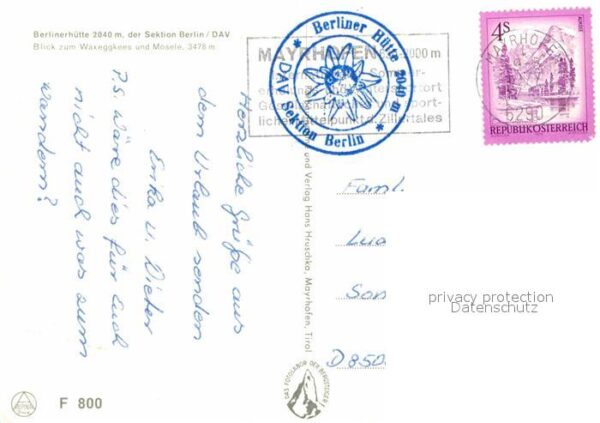 Berlinerhütte 2040 m, der Sektion Berlin / DAV
Blick zum Waxeggkees und Mösele, 3478 m
Herzliche Grüße aus
dem Urlaub senden
Erika u. Dieter
P.S. Wäre dies für Euch
nicht auch was zum
wandern?
F 800
und Verlag Hans Hruschka, Mayrhofen, Tirol
DAS FOTOLABOR DER BERGSTEIGER
MAYRHOFEN
Berliner Hütte 2040 m
* DAV Sektion Berlin *
4S
REPUBLIK ÖSTERREICH
MAYRHOFEN
6290
Faml.
Son
D 850
privacy protection
Datenschutz